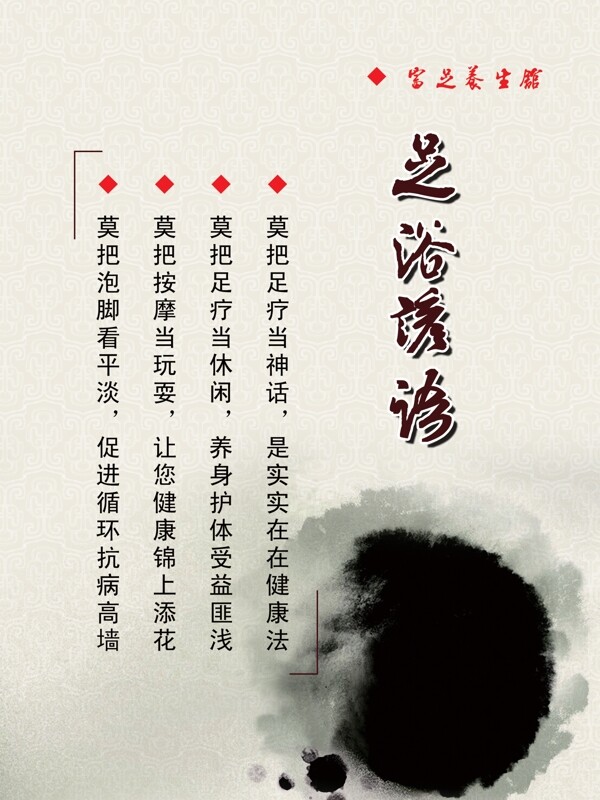 富足養生館
足浴谚语
莫把足疗当神话，是实实在在健康法
莫把足疗当休闲，养身护体受益匪浅
莫把按摩当玩耍，让您健康锦上添花
莫把泡脚看平淡，促进循环抗病高墙